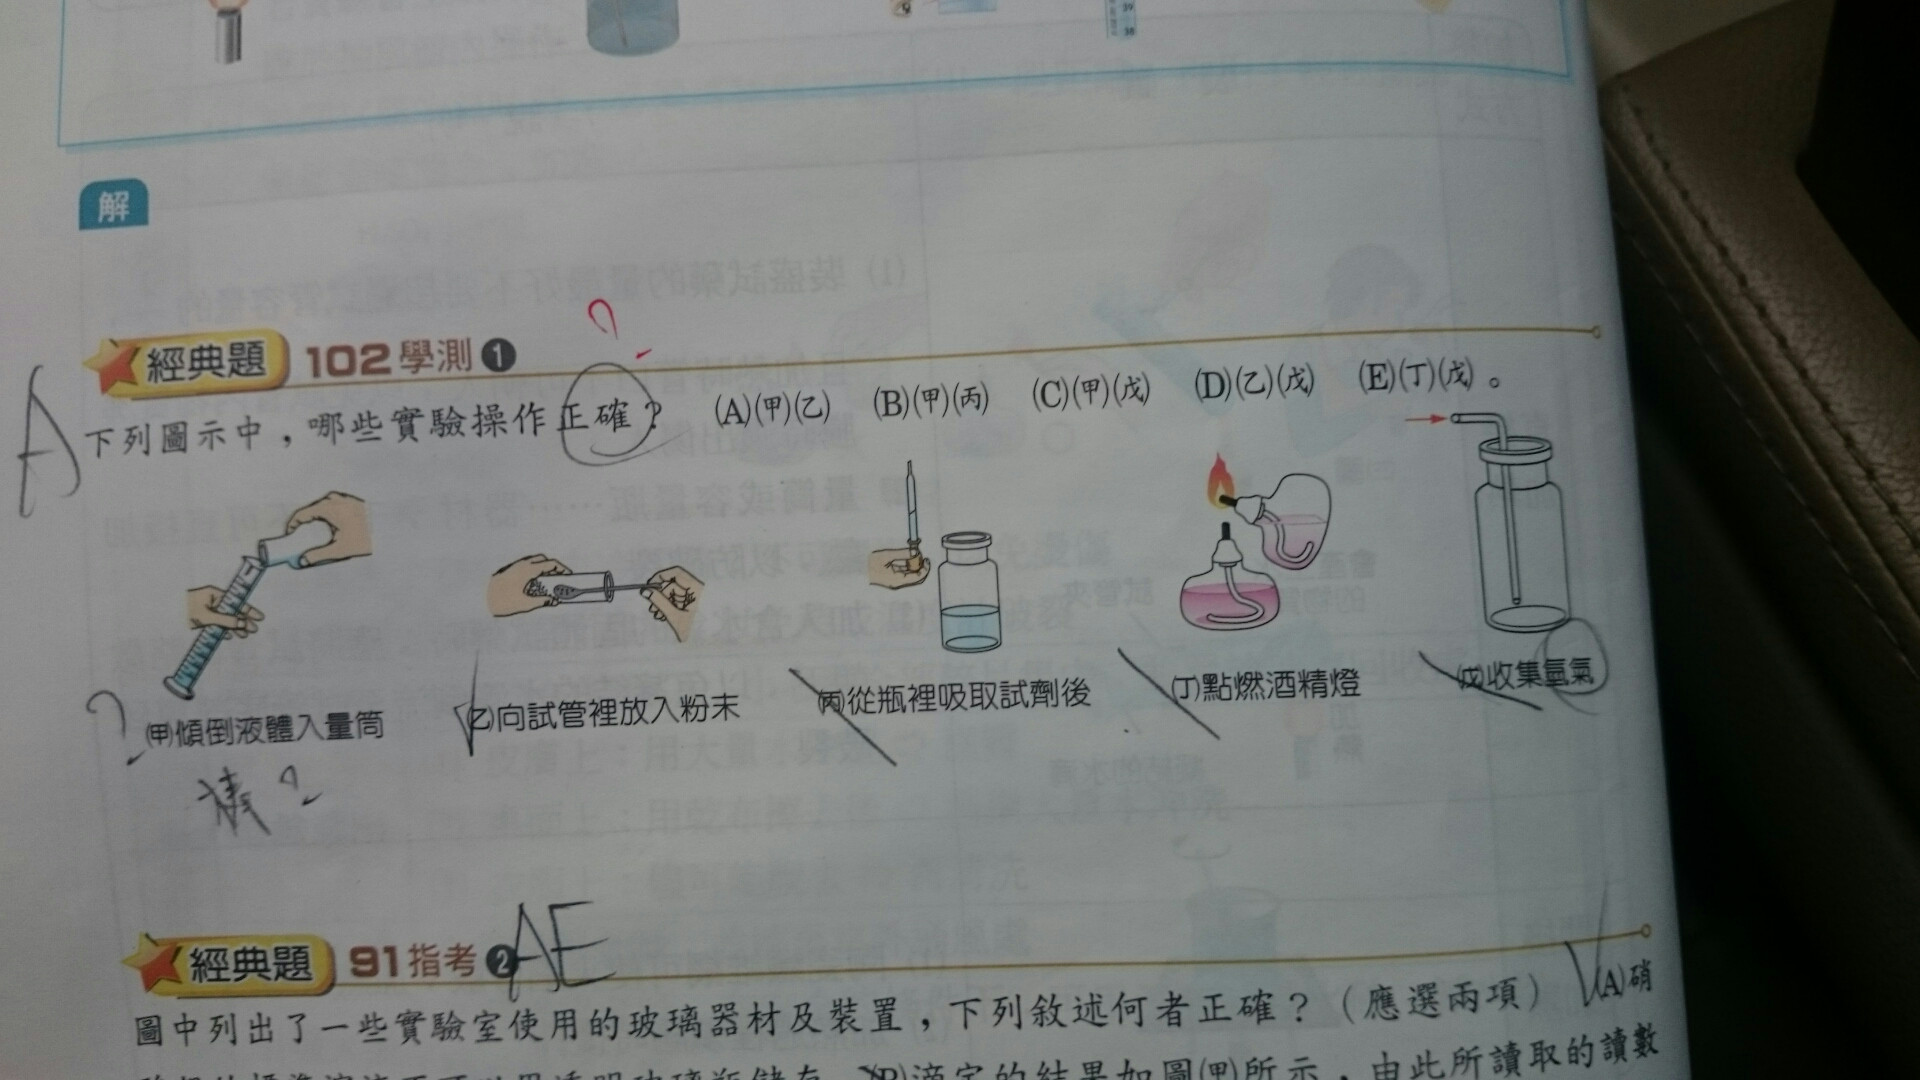 解
經典題 102學測 1
下列圖示中，哪些實驗操作正確？ (A)(甲)(乙) (B)(甲)(丙) (C)(甲)(戊) (D)(乙)(戊) (E)(丁)(戊)。
A
?
(甲)傾倒液體入量筒 (乙)向試管裡放入粉末 (丙)從瓶裡吸取試劑後 (丁)點燃酒精燈 (戊)收集氫氣
?
經典題 91指考 2 AE
圖中列出了一些實驗室使用的玻璃器材及裝置，下列敘述何者正確？（應選兩項） (A)硝
(B)滴定的結果如圖(甲)所示，由此所讀取的讀數